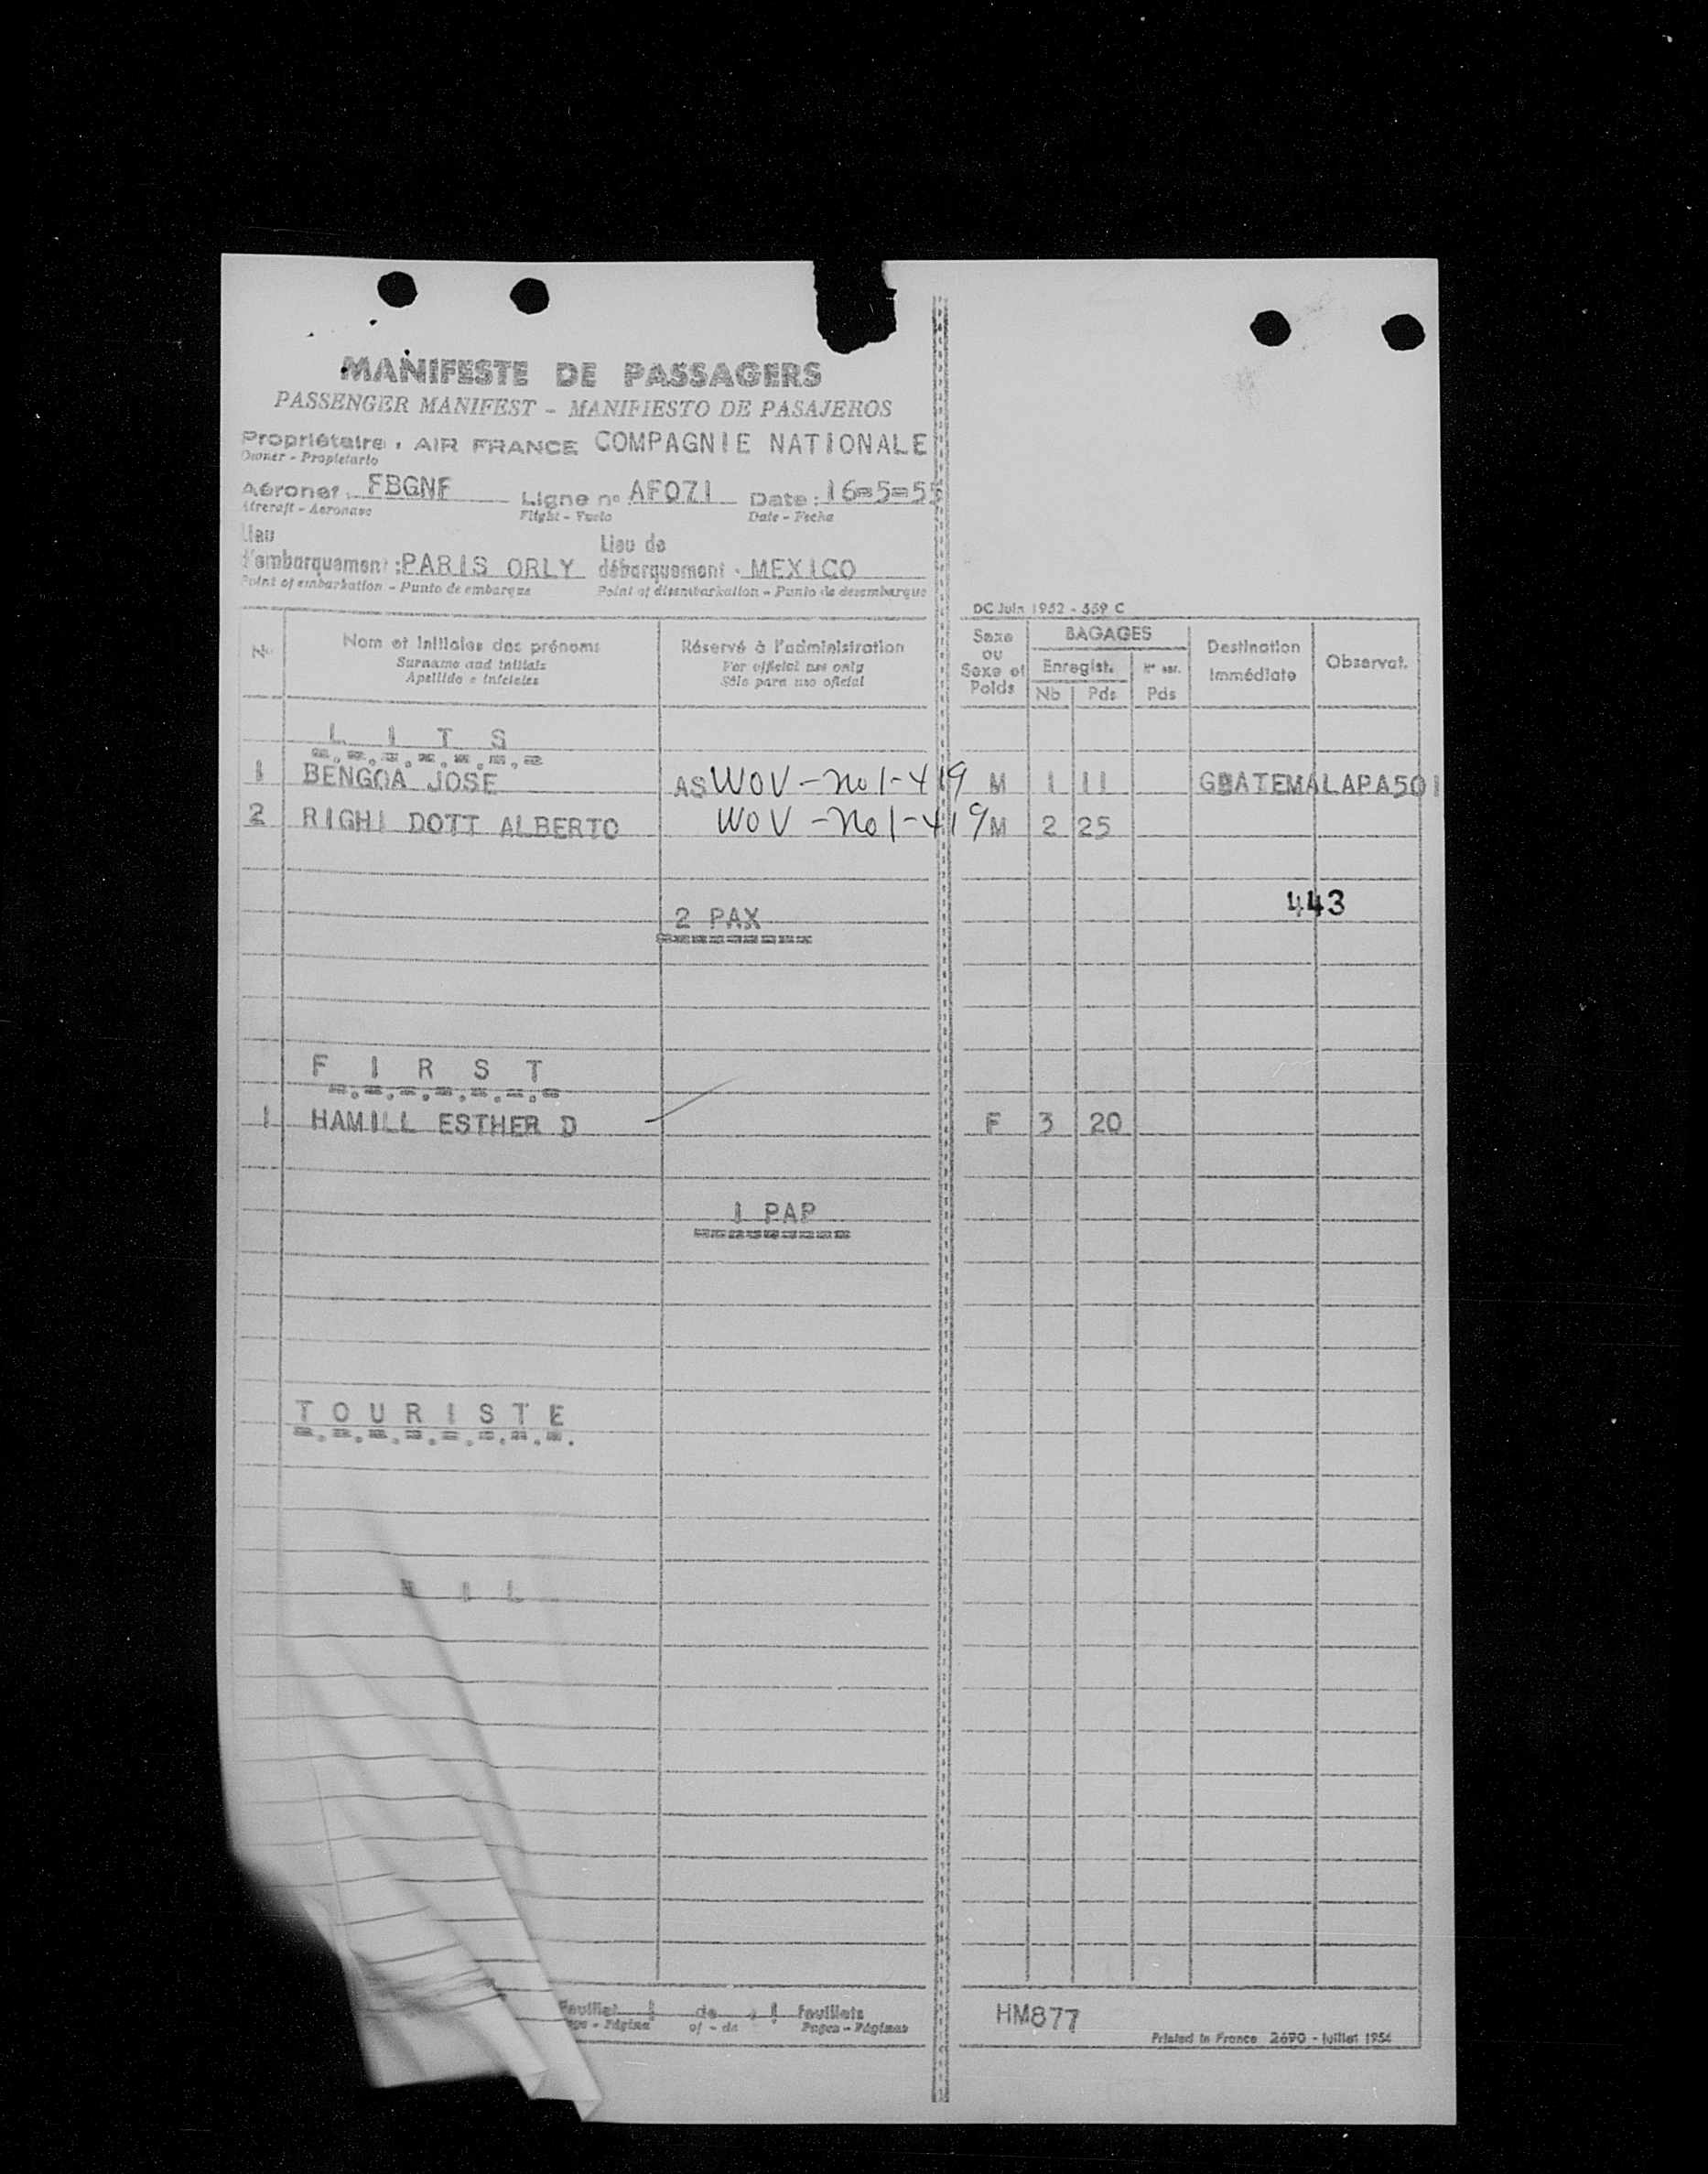 MANIFESTE DE PASSAGERS
PASSENGER MANIFEST - MANIFIESTO DE PASAJEROS
Propriétaire : AIR FRANCE COMPAGNIE NATIONALE
Owner - Propietario
Aéronef : FBGNF Ligne n° AF071 Date : 16=5=55
Aircraft - Aeronave Flight - Vuelo Date - Fecha
Lieu d'embarquement : PARIS ORLY Lieu de débarquement : MEXICO
Point of embarkation - Punto de embarque Point of disembarkation - Punto de desembarque
DC Juin 1952 - 559 C
N° Nom et initiales des prénoms Réservé à l'administration Sexe ou Sexe et Poids BAGAGES Destination immédiate Observat.
Surname and initials For official use only Enregist. N° enr.
Apellido e iniciales Sólo para uso oficial Nb Pds Pds
L I T S
1 BENGOA JOSE AS WOV - no 1-419 M 1 11 GUATEMALAPA501
2 RIGHI DOTT ALBERTO WOV - no 1-419 M 2 25
443
2 PAX
F I R S T
1 HAMILL ESTHER D F 3 20
1 PAP
T O U R I S T E
N I L
Feuillet 1 de 1 feuillets
Página of - de Pages - Páginas
HM877
Printed in France 2690 - Juillet 1954